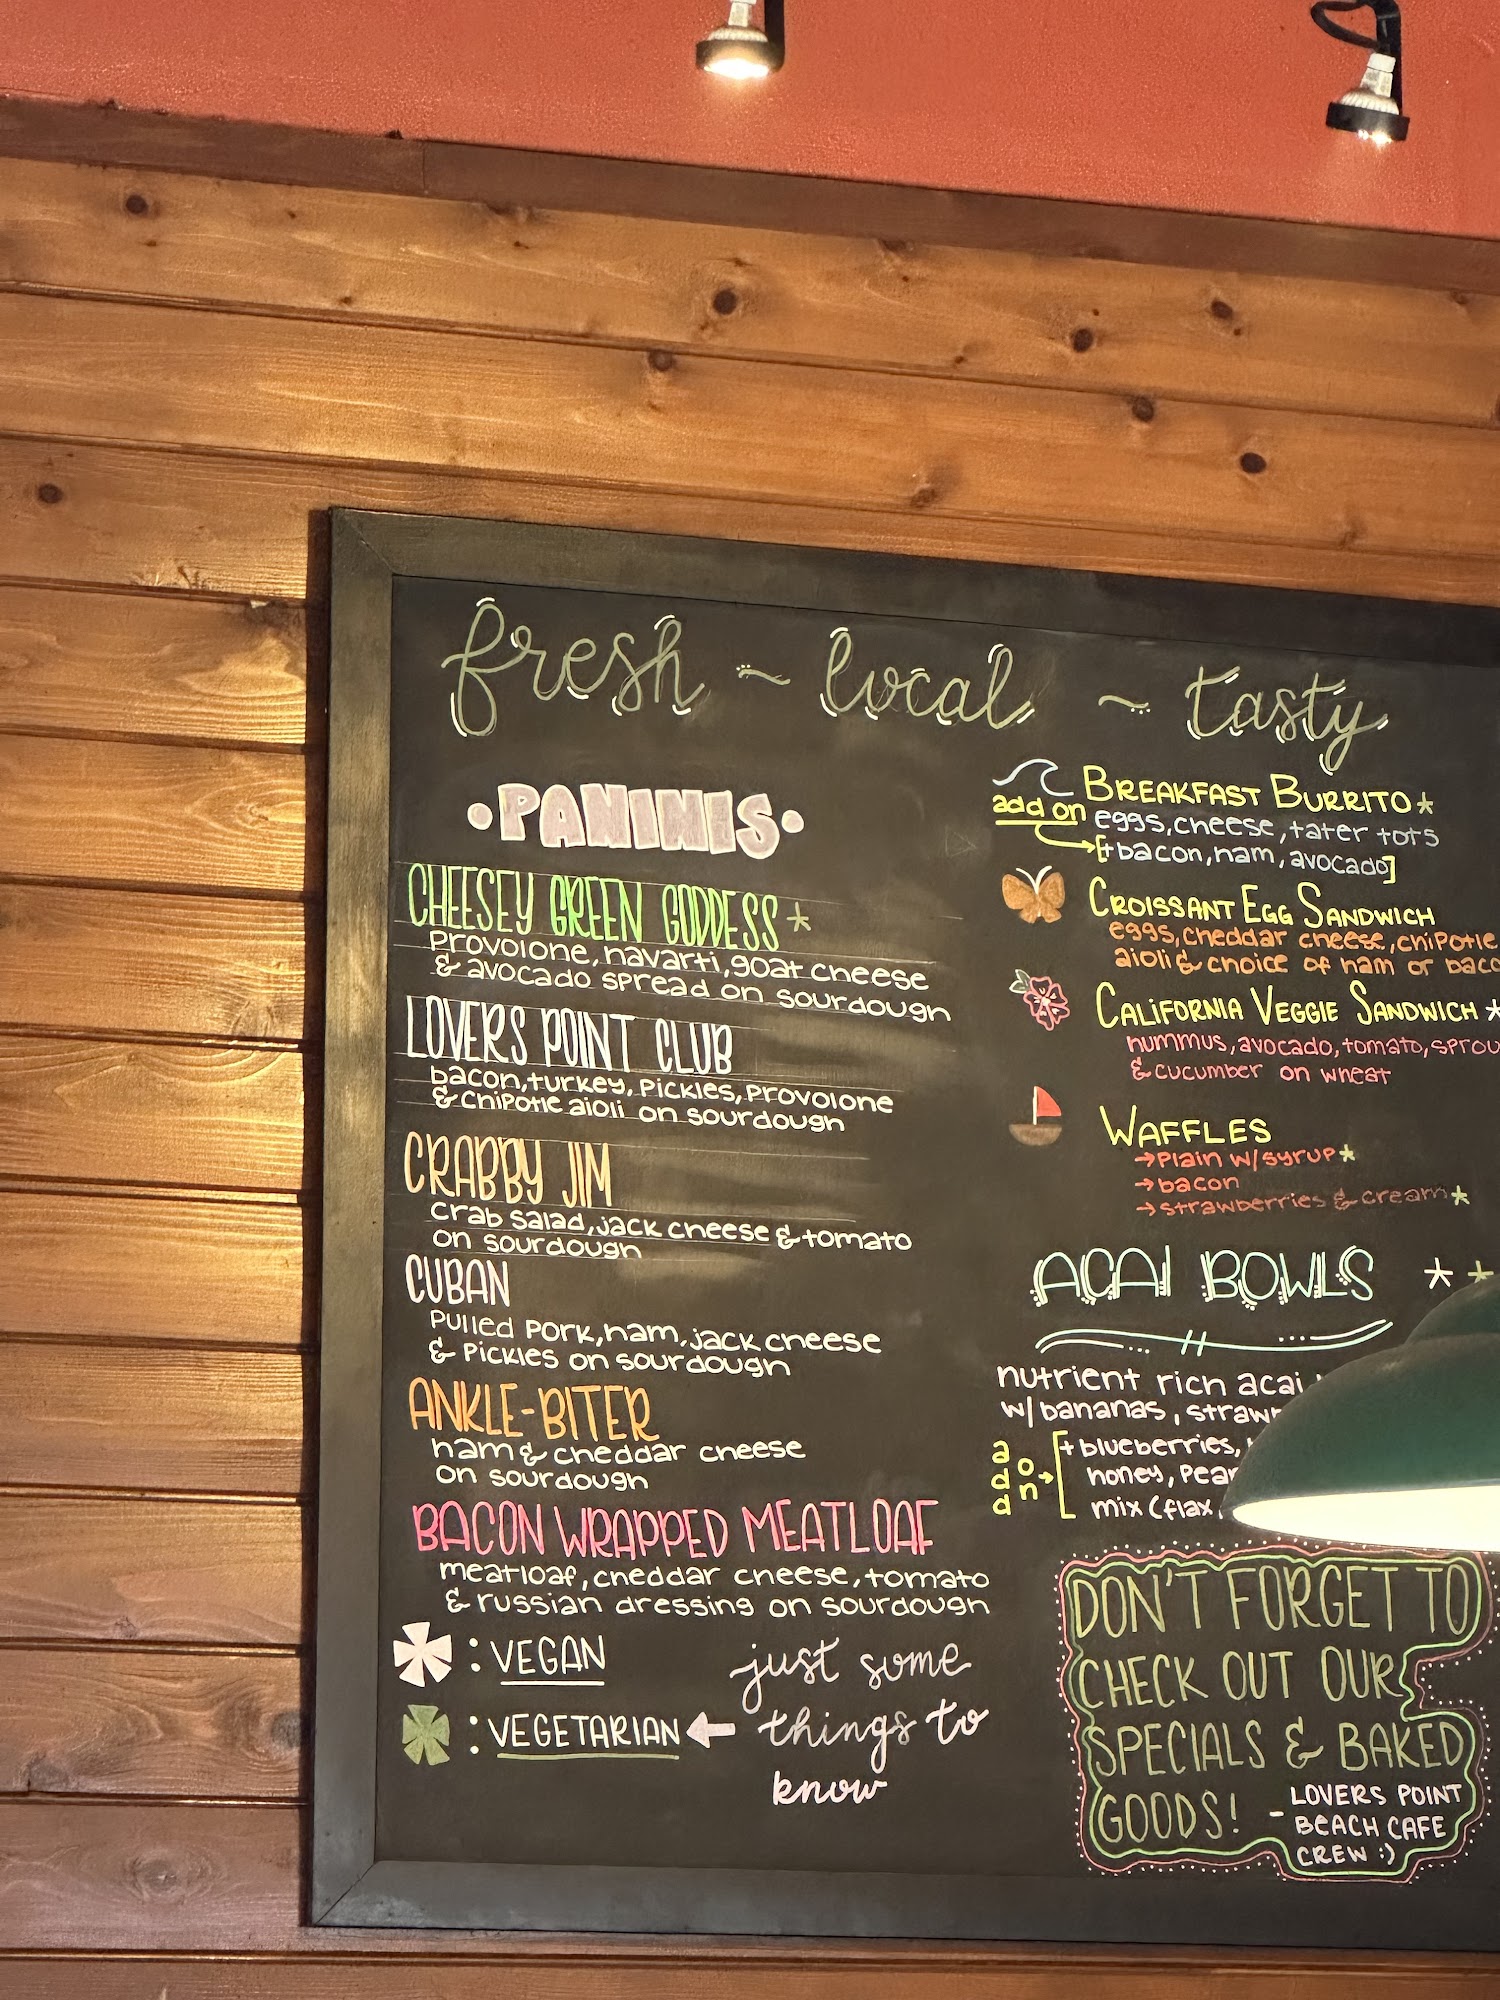 fresh ~ local ~ tasty
• PANINIS •
CHEESEY GREEN GODDESS *
provolone, navarti, goat cheese
& avocado spread on sourdough
LOVERS POINT CLUB
bacon, turkey, pickles, provolone
& chipotle aioli on sourdough
CRABBY JIM
crab salad, jack cheese & tomato
on sourdough
CUBAN
pulled pork, ham, jack cheese
& pickles on sourdough
ANKLE-BITER
ham & cheddar cheese
on sourdough
BACON WRAPPED MEATLOAF
meatloaf, cheddar cheese, tomato
& russian dressing on sourdough
: VEGAN
: VEGETARIAN ←
just some
things to
know
BREAKFAST BURRITO *
add on
eggs, cheese, tater tots
[+bacon, ham, avocado]
CROISSANT EGG SANDWICH
eggs, cheddar cheese, chipotle
aioli & choice of ham or baco
CALIFORNIA VEGGIE SANDWICH *
hummus, avocado, tomato, sprou
& cucumber on wheat
WAFFLES
→ plain w/ syrup *
→ bacon
→ strawberries & cream *
ACAI BOWLS * *
nutrient rich acai
w/ bananas, straw
add on → [+ blueberries,
honey, pea
mix (flax,
DON'T FORGET TO
CHECK OUT OUR
SPECIALS & BAKED
GOODS!
- LOVERS POINT
BEACH CAFE
CREW :)